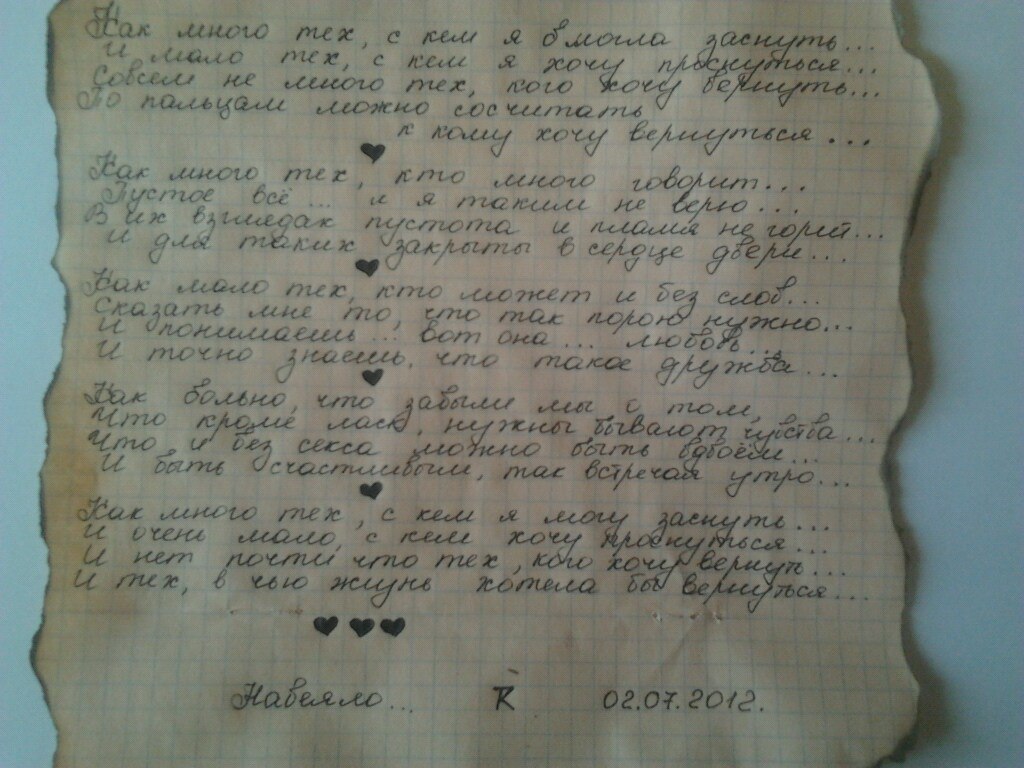 Как много тех, с кем я б могла заснуть...
И мало тех, с кем я хочу проснуться...
Совсем не много тех, кого хочу вернуть...
По пальцам можно сосчитать
к кому хочу вернуться...
Как много тех, кто много говорит...
Пустое всё... и я таким не верю...
В их взглядах пустота и пламя не горит...
И для таких закрыты в сердце двери...
Как мало тех, кто может и без слов...
Сказать мне то, что так порою нужно...
И понимаешь... вот она... любовь...
И точно знаешь, что такое дружба...
Как больно, что забыли мы о том,
Что кроме ласк, нужны бывают чувства...
Что и без секса можно быть вдвоём...
И быть счастливым, так встречая утро...
Как много тех, с кем я могу заснуть...
И очень мало, с кем хочу проснуться...
И нет почти что тех, кого хочу вернуть...
И тех, в чью жизнь хотела бы вернуться...
Навеяло... 02.07.2012.